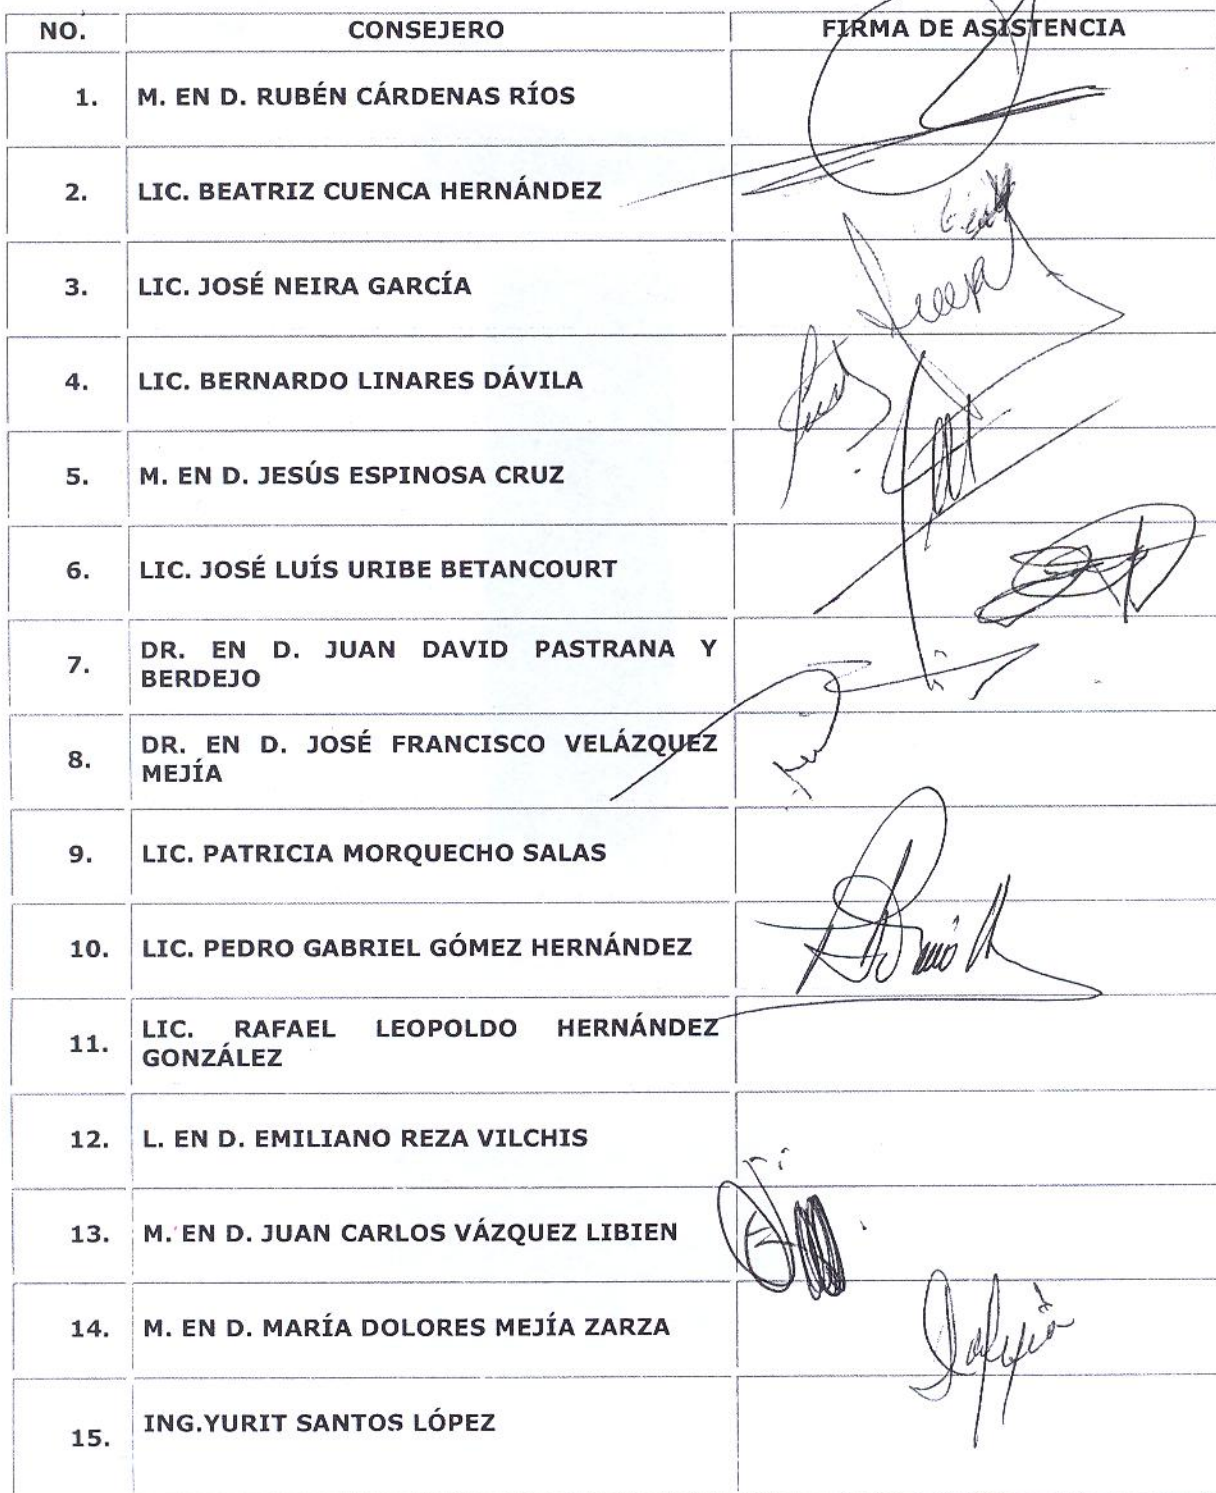 NO. CONSEJERO FIRMA DE ASISTENCIA
1. M. EN D. RUBÉN CÁRDENAS RÍOS
2. LIC. BEATRIZ CUENCA HERNÁNDEZ
3. LIC. JOSÉ NEIRA GARCÍA
4. LIC. BERNARDO LINARES DÁVILA
5. M. EN D. JESÚS ESPINOSA CRUZ
6. LIC. JOSÉ LUÍS URIBE BETANCOURT
7. DR. EN D. JUAN DAVID PASTRANA Y
BERDEJO
8. DR. EN D. JOSÉ FRANCISCO VELÁZQUEZ
MEJÍA
9. LIC. PATRICIA MORQUECHO SALAS
10. LIC. PEDRO GABRIEL GÓMEZ HERNÁNDEZ
11. LIC. RAFAEL LEOPOLDO HERNÁNDEZ
GONZÁLEZ
12. L. EN D. EMILIANO REZA VILCHIS
13. M. EN D. JUAN CARLOS VÁZQUEZ LIBIEN
14. M. EN D. MARÍA DOLORES MEJÍA ZARZA
15. ING.YURIT SANTOS LÓPEZ